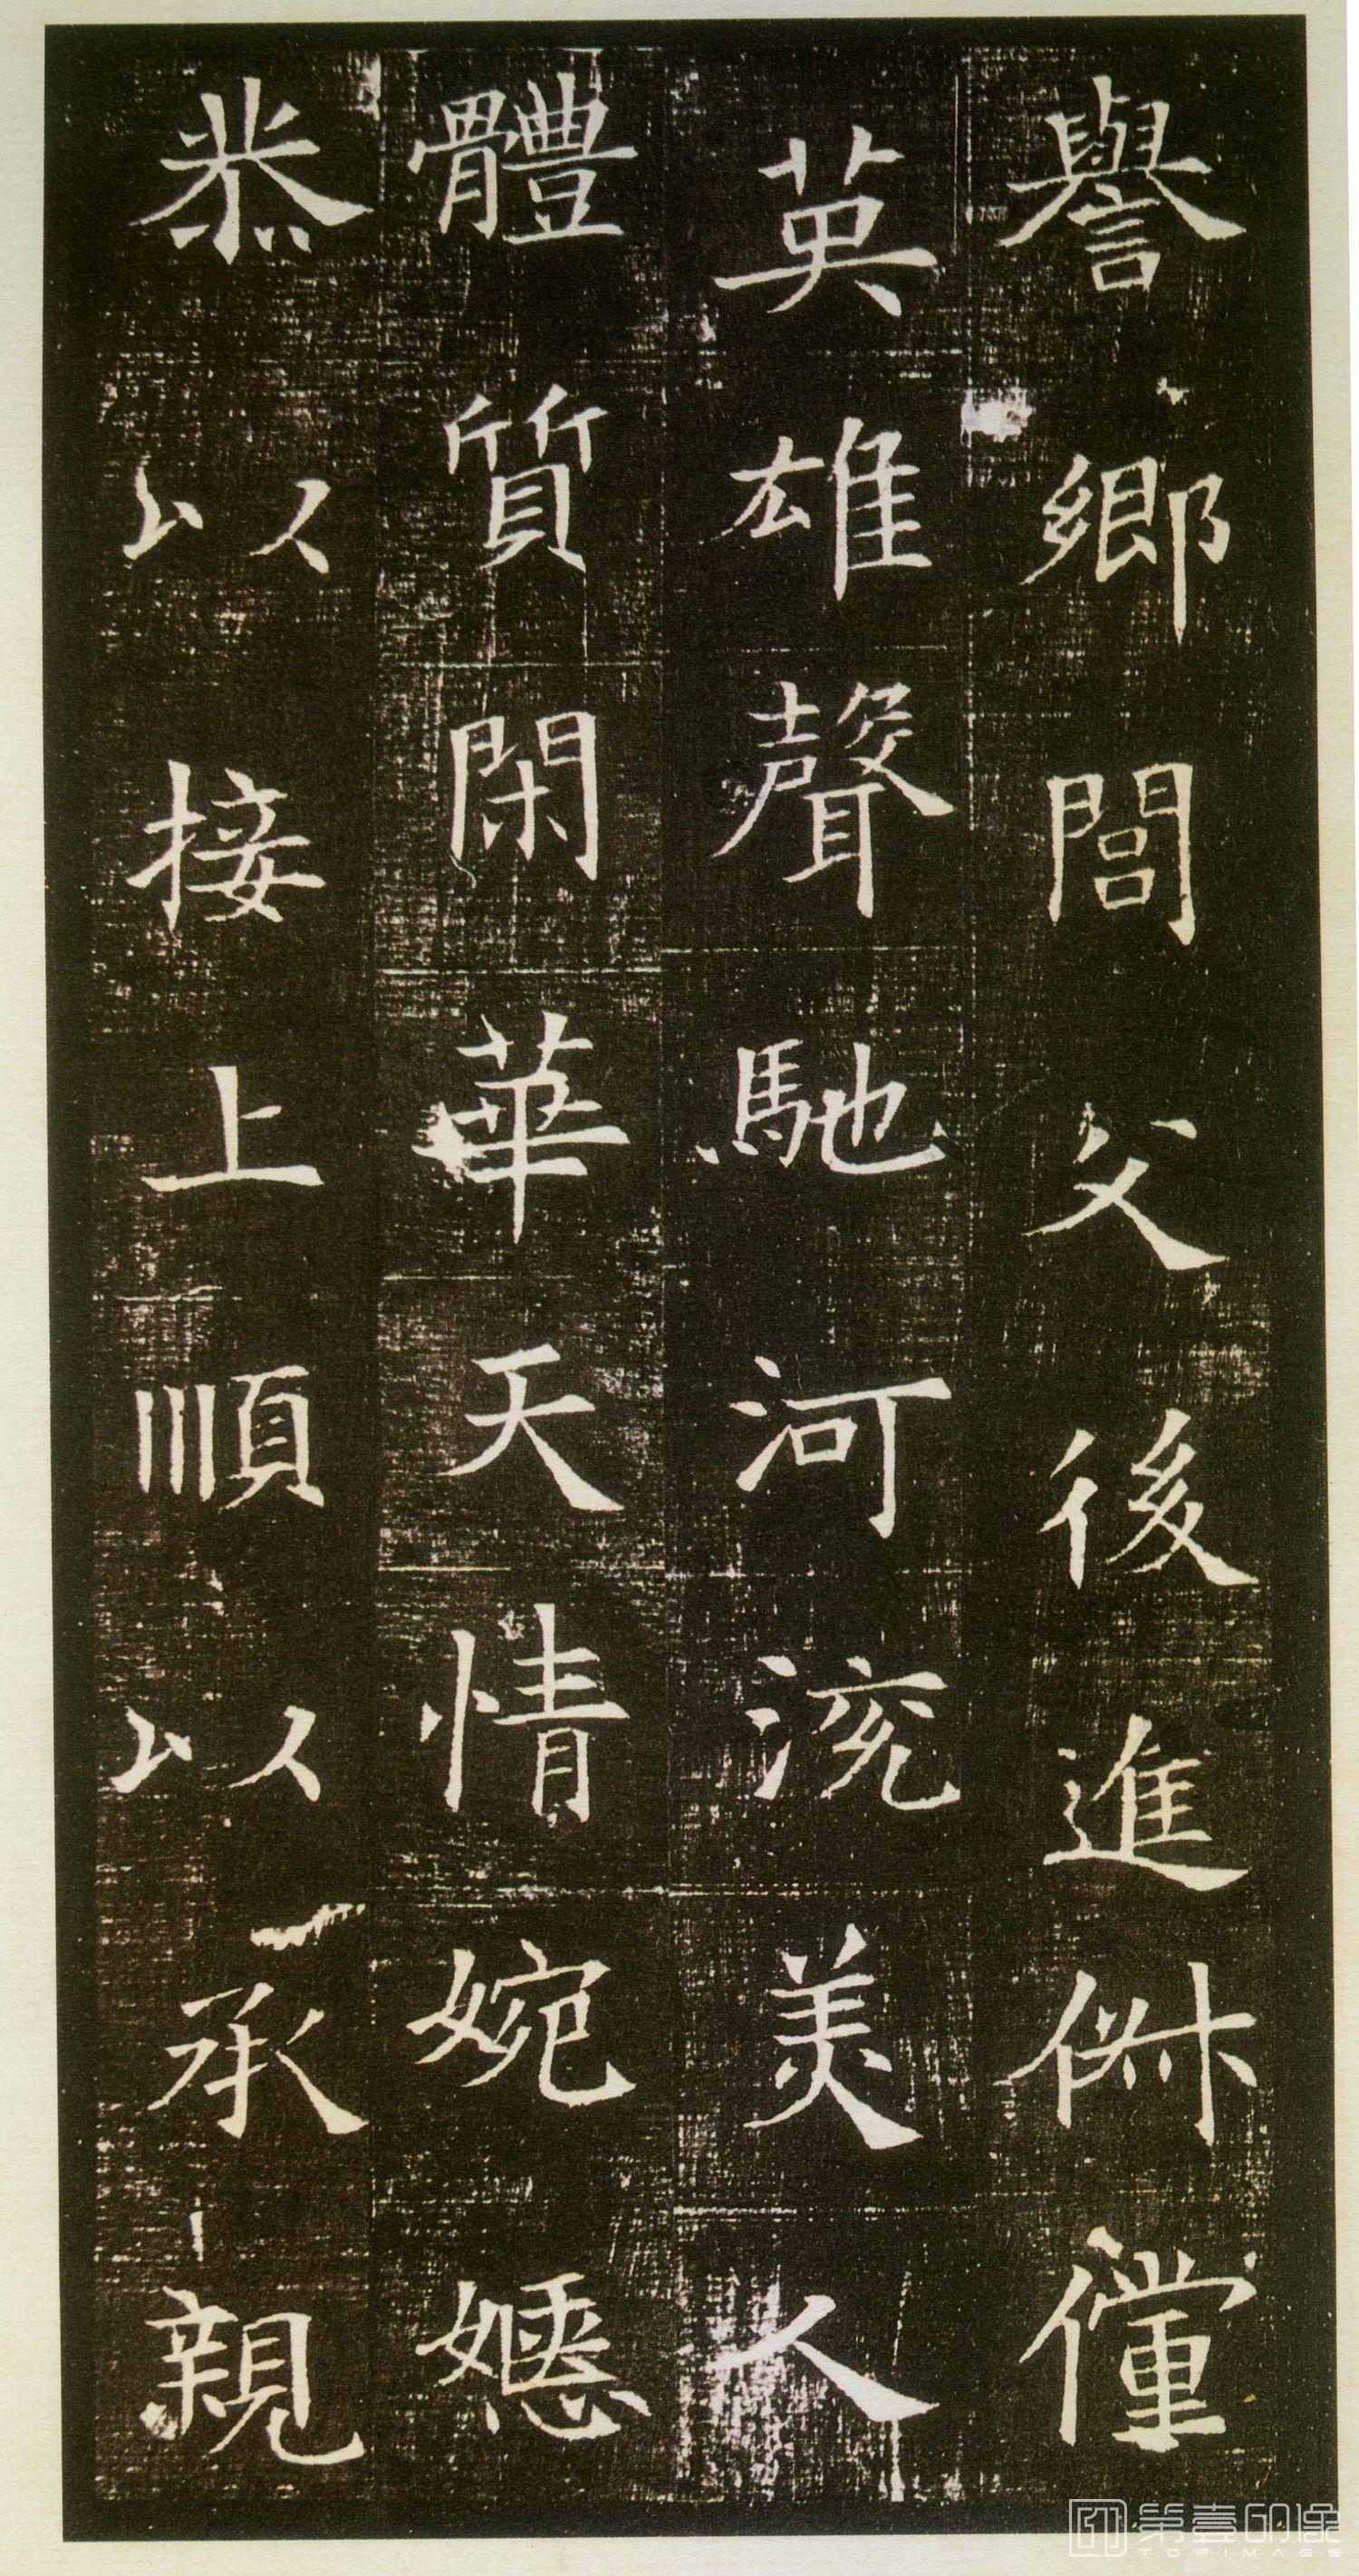 譽鄉閭父後進俶儻
英雄聲馳河渷美人
體質閑華天情婉嫕
恭以接上順以承親
第壹印像
TOPIMAGE